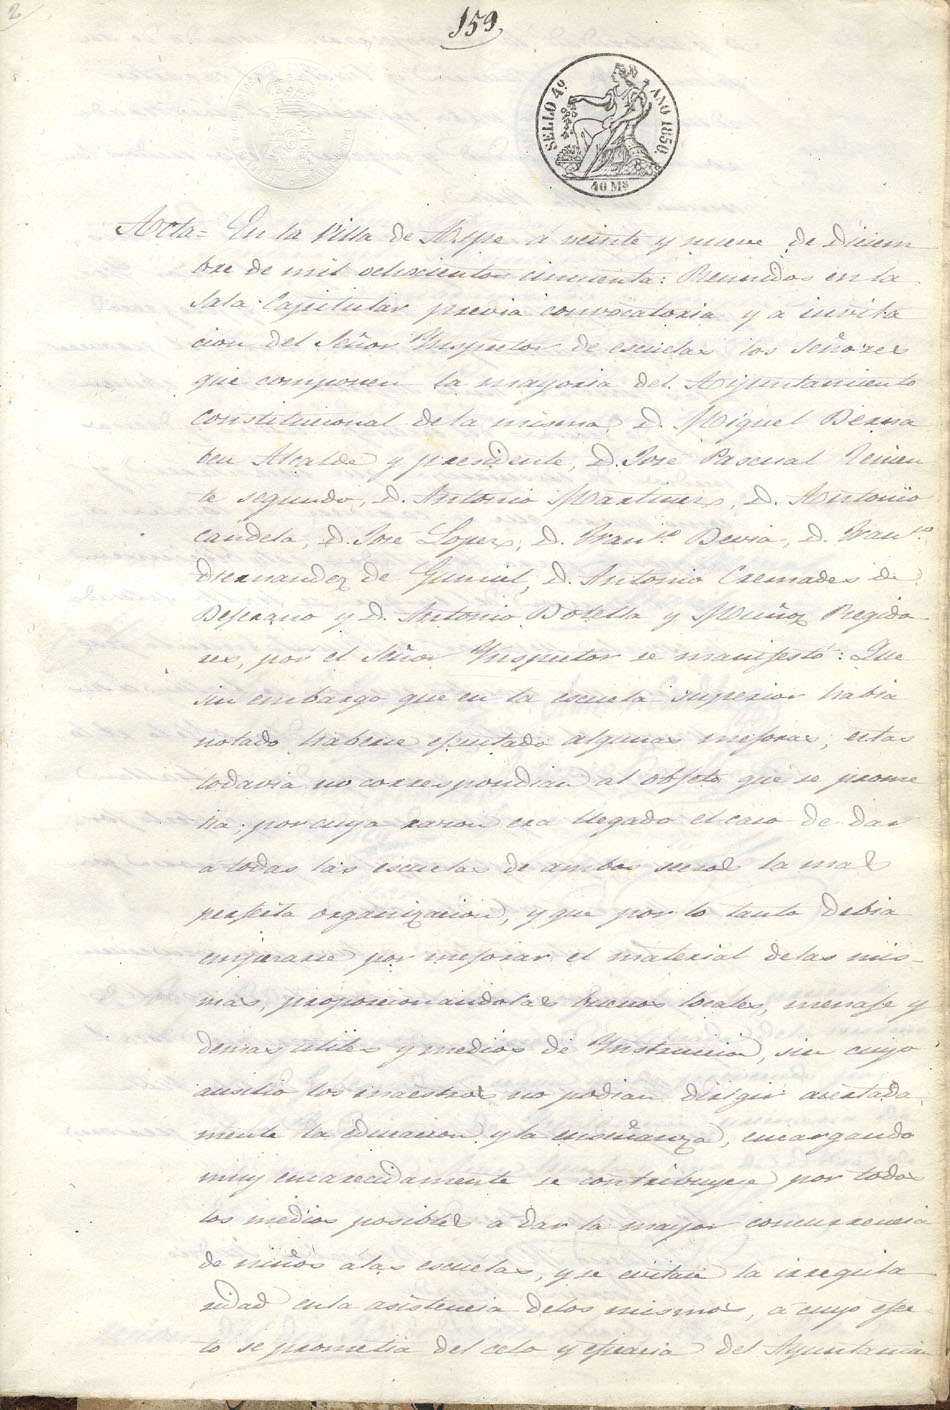 2
159
SELLO 4º AÑO 1850.
40 Ms
Acta = En la Villa de Aspe á veinte y nueve de diciem
bre de mil ochocientos cincuenta: Reunidos en la
Sala Capitular previa convocatoria y a invita
cion del Señor Ynspector de escuelas los Señores
que componen la mayoria del Ayuntamiento
Constitucional de la misma, D. Miguel Berna
beu Alcalde y presidente, D. José Pascual Tenien
te segundo, D. Antonio Martinez, D. Antonio
Candela, D. José Lopez, D. Franco. Devia, D. Franco.
Hernandez de Gumiel, D. Antonio Cremades de
y D. Antonio Botella y Muñoz Regido
res, por el Señor Ynspector se manifestó: Que
sin embargo que en la escuela superior habia
notado haberse ejecutado algunas mejoras, estas
todavia no correspondian al objeto que se prome
tia; por cuya razon era llegado el caso de dar
a todas las escuelas de ambos secsos la mas
perfecta organizacion, y que por lo tanto debia
empezarse por mejorar el material de las mis-
mas, proporcionandolas buenos locales, menaje y
demas utiles y medios de Ynstruccion, sin cuyo
ausilio los maestros no podian dirigir acertada
mente la educacion y la enseñanza, encargando
muy encarecidamente se contribuyese por todos
los medios posibles a dar la mayor concurrencia
de niños á las escuelas, y se evitase la irregula
ridad en la asistencia de los mismos, á cuyo efec-
to se prometia del celo y eficacia del Ayuntamien